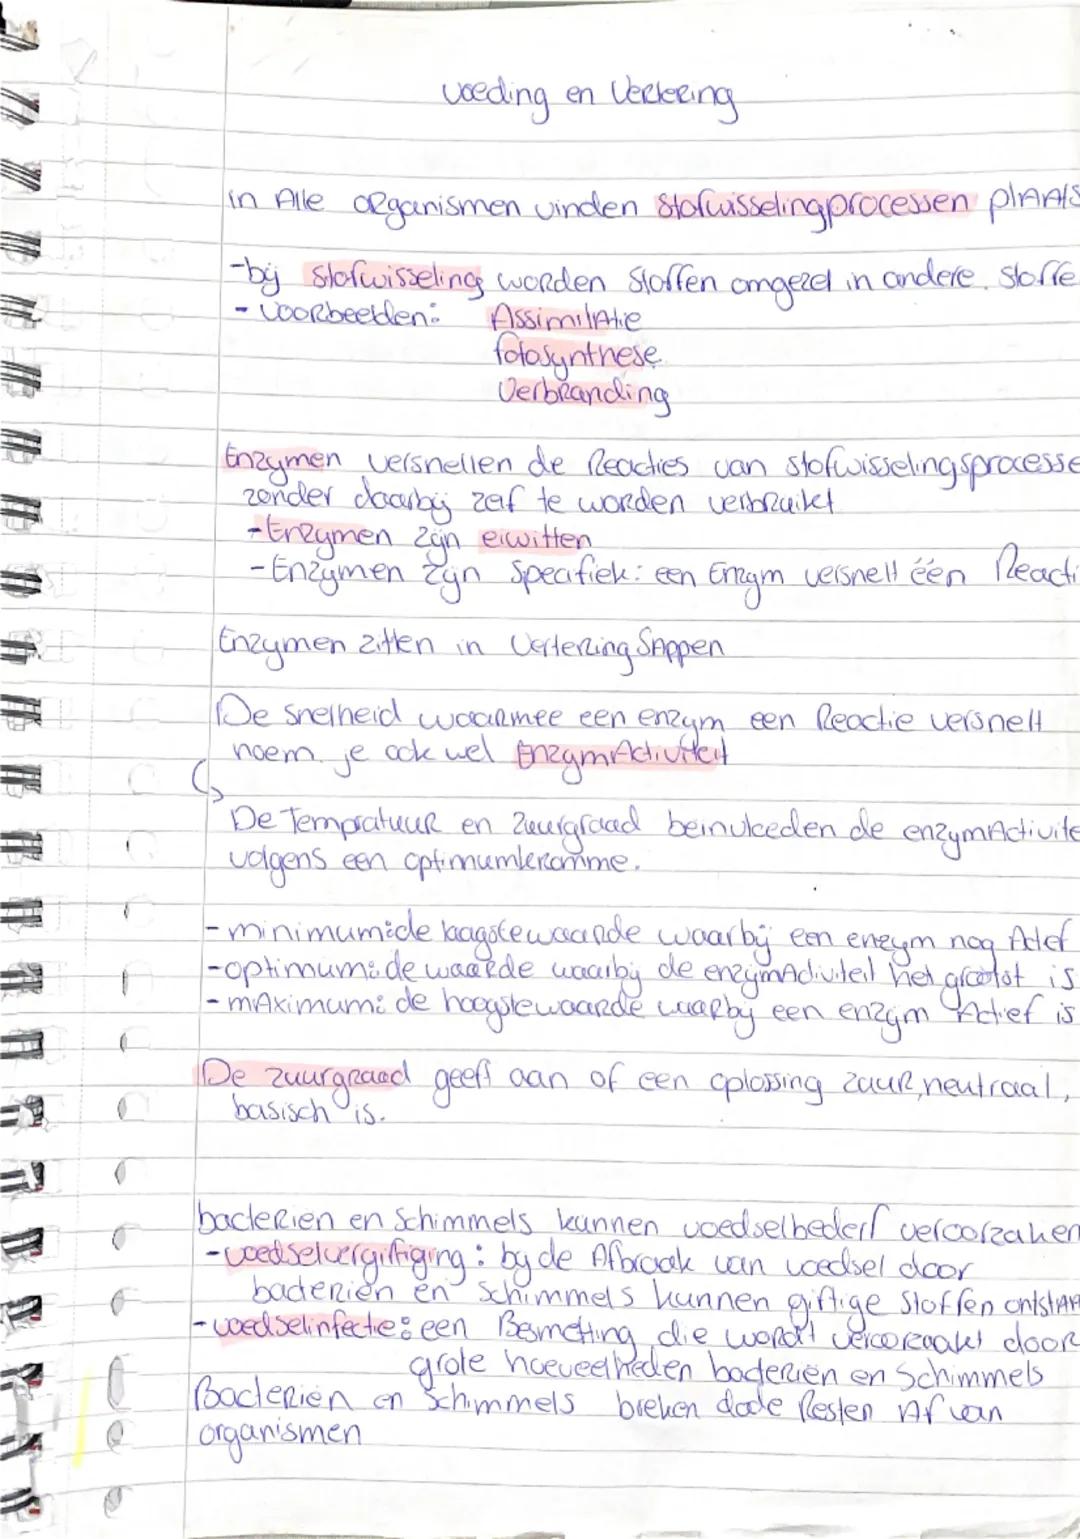 voeding en Vertering
in Alle organismen vinden Stofwisselingprocessen plaats
-bij Stofwisseling worden Stoffen omgezet in andere stoffe
- Voorbeelden: Assimilatie
fotosynthese
Verbranding
Enzymen versnellen de Reacties van stofwisselingsprocesse
zonder daarbij zelf te worden verbruikt
-Enzymen zijn eiwitten
-Enzymen zijn Specifiek: een Enzym versnelt één Reacti
Enzymen zitten in Vertering Sappen
De snelheid waarmee een enzym een Reactie versnelt
noem je ook wel EnzymActiviteit
De Tempratuur en Zuurgraad beinvloeden de enzymActivite
volgens een optimumkromme.
-minimum:de laagste waarde waarbij een enzym nog Actef
-optimum: de waarde waarbij de enzymActiviteit het grootst is
-mAximum: de hoogste waarde waarbij een enzym Actief is
De zuurgraad geeft aan of een oplossing zuur, neutraal,
basisch is.
bacterien en Schimmels kunnen voedselbederf veroorzaken
-voedselvergiftiging: bij de Afbraak van voedsel door
bacteriën en Schimmels kunnen giftige Stoffen ontstaa
-voedselinfectie: een Besmetting die wordt veroorzaakt door
grote hoeveelheden bacteriën en Schimmels
Bacteriën en Schimmels breken dode Resten Af van
organismen